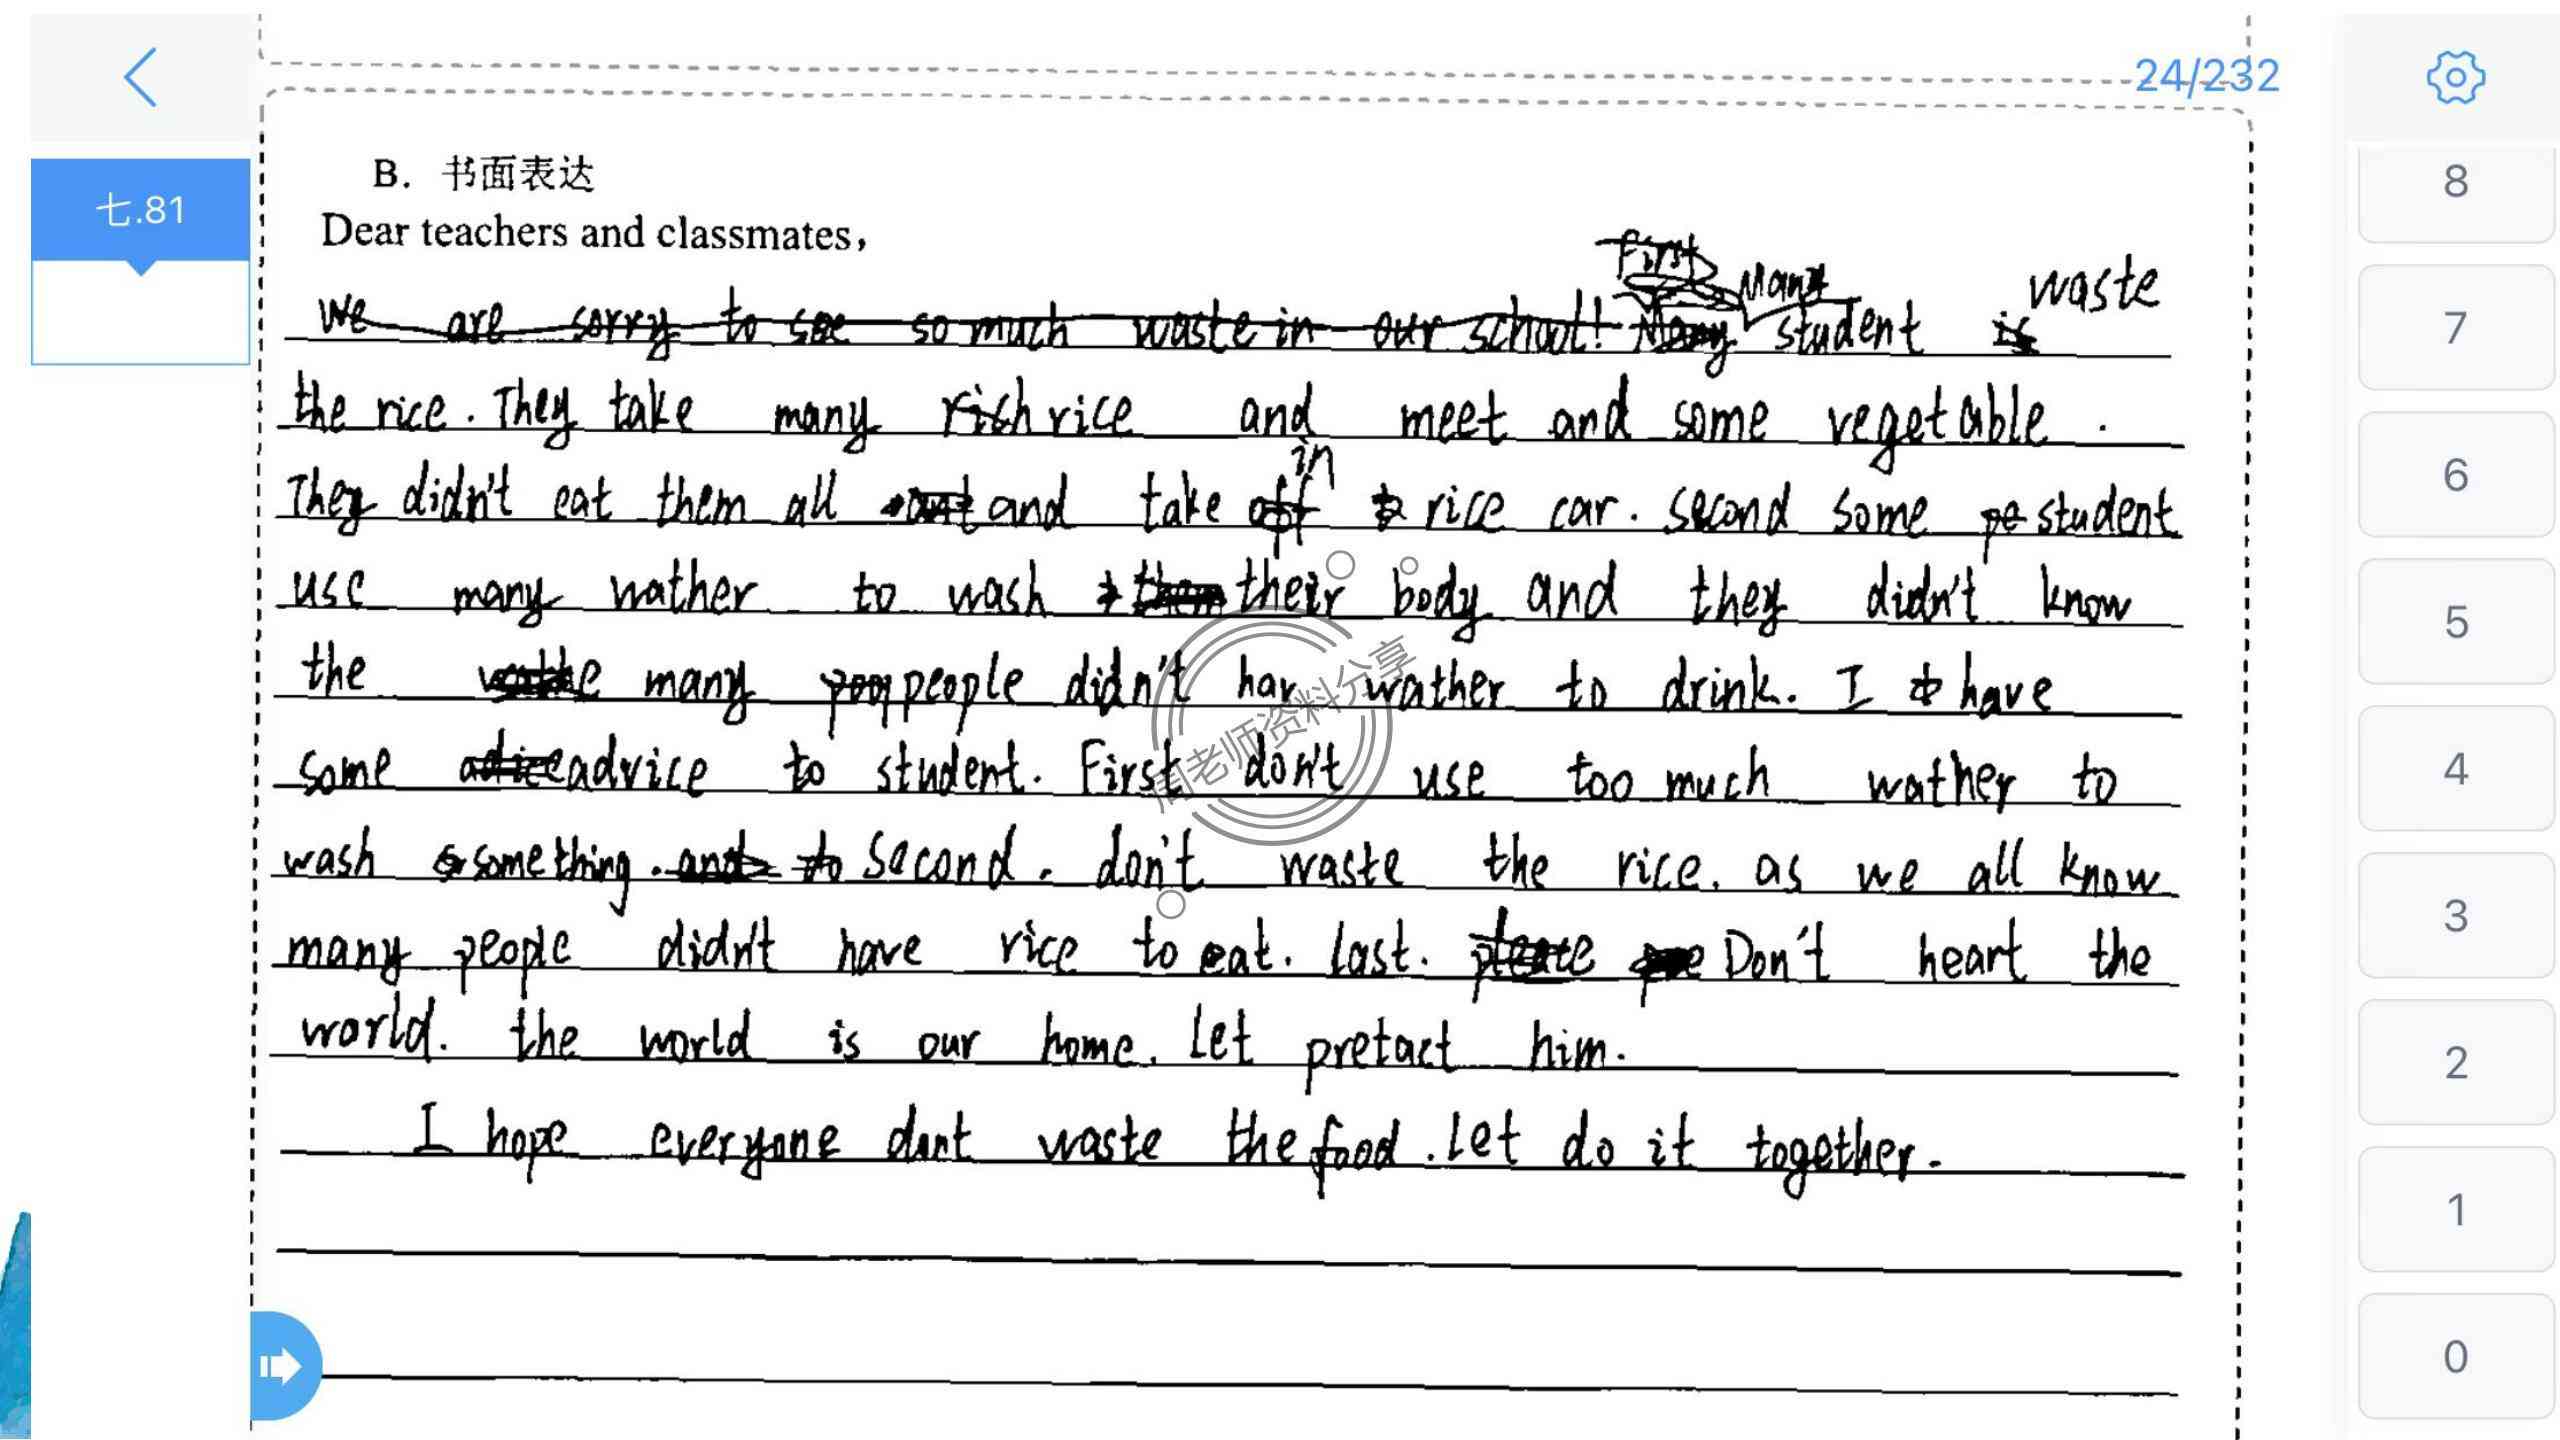 24/232
七.81
B. 书面表达
Dear teachers and classmates,
We are sorry to see so much waste in our school! First Many student is waste
the rice. They take many rich rice and meet and some vegetable.
They didn't eat them all and take off in rice car. second some pe student
use many wather to wash their body and they didn't know
the many people didn't hav wather to drink. I have
some advice to student. First don't use too much wather to
wash something. and to second. don't waste the rice. as we all know
many people didn't have rice to eat. last. Don't heart the
world. the world is our home. Let pretact him.
I hope everyone dont waste the food. let do it together.
周老师资料分享
8
7
6
5
4
3
2
1
0